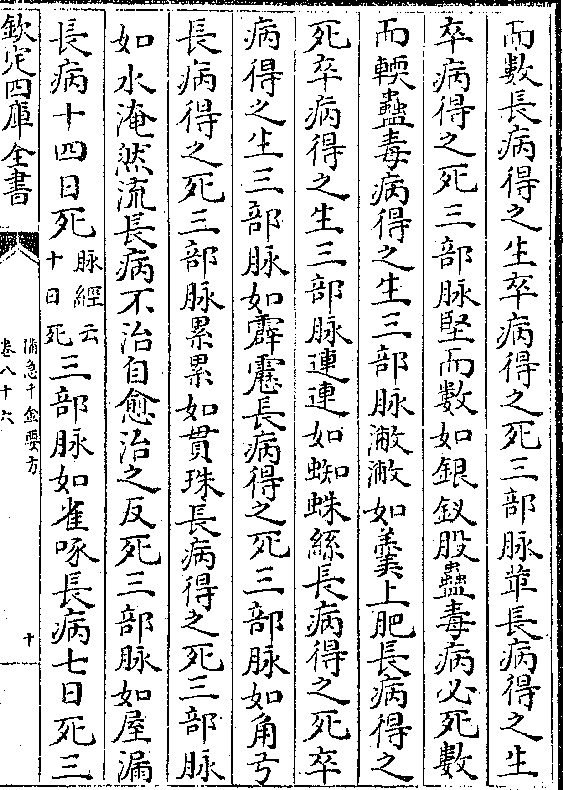 而數長病得之生卒病得之死三部脉革長病得之生
卒病得之死三部脉堅而數如銀釵股蠱毒病必死數
而輭蠱毒病得之生三部脉潎潎如羹上肥長病得之
死卒病得之生三部脉連連如蜘蛛絲長病得之死卒
病得之生三部脉如霹靂長病得之死三部脉如角弓
長病得之死三部脉累累如貫珠長病得之死三部脉
如水淹然流長病不治自愈治之反死三部脉如屋漏
長病十四日死脉經云十日死三部脉如雀啄長病七日死三
欽定四庫全書
備急千金要方
卷八十六
十